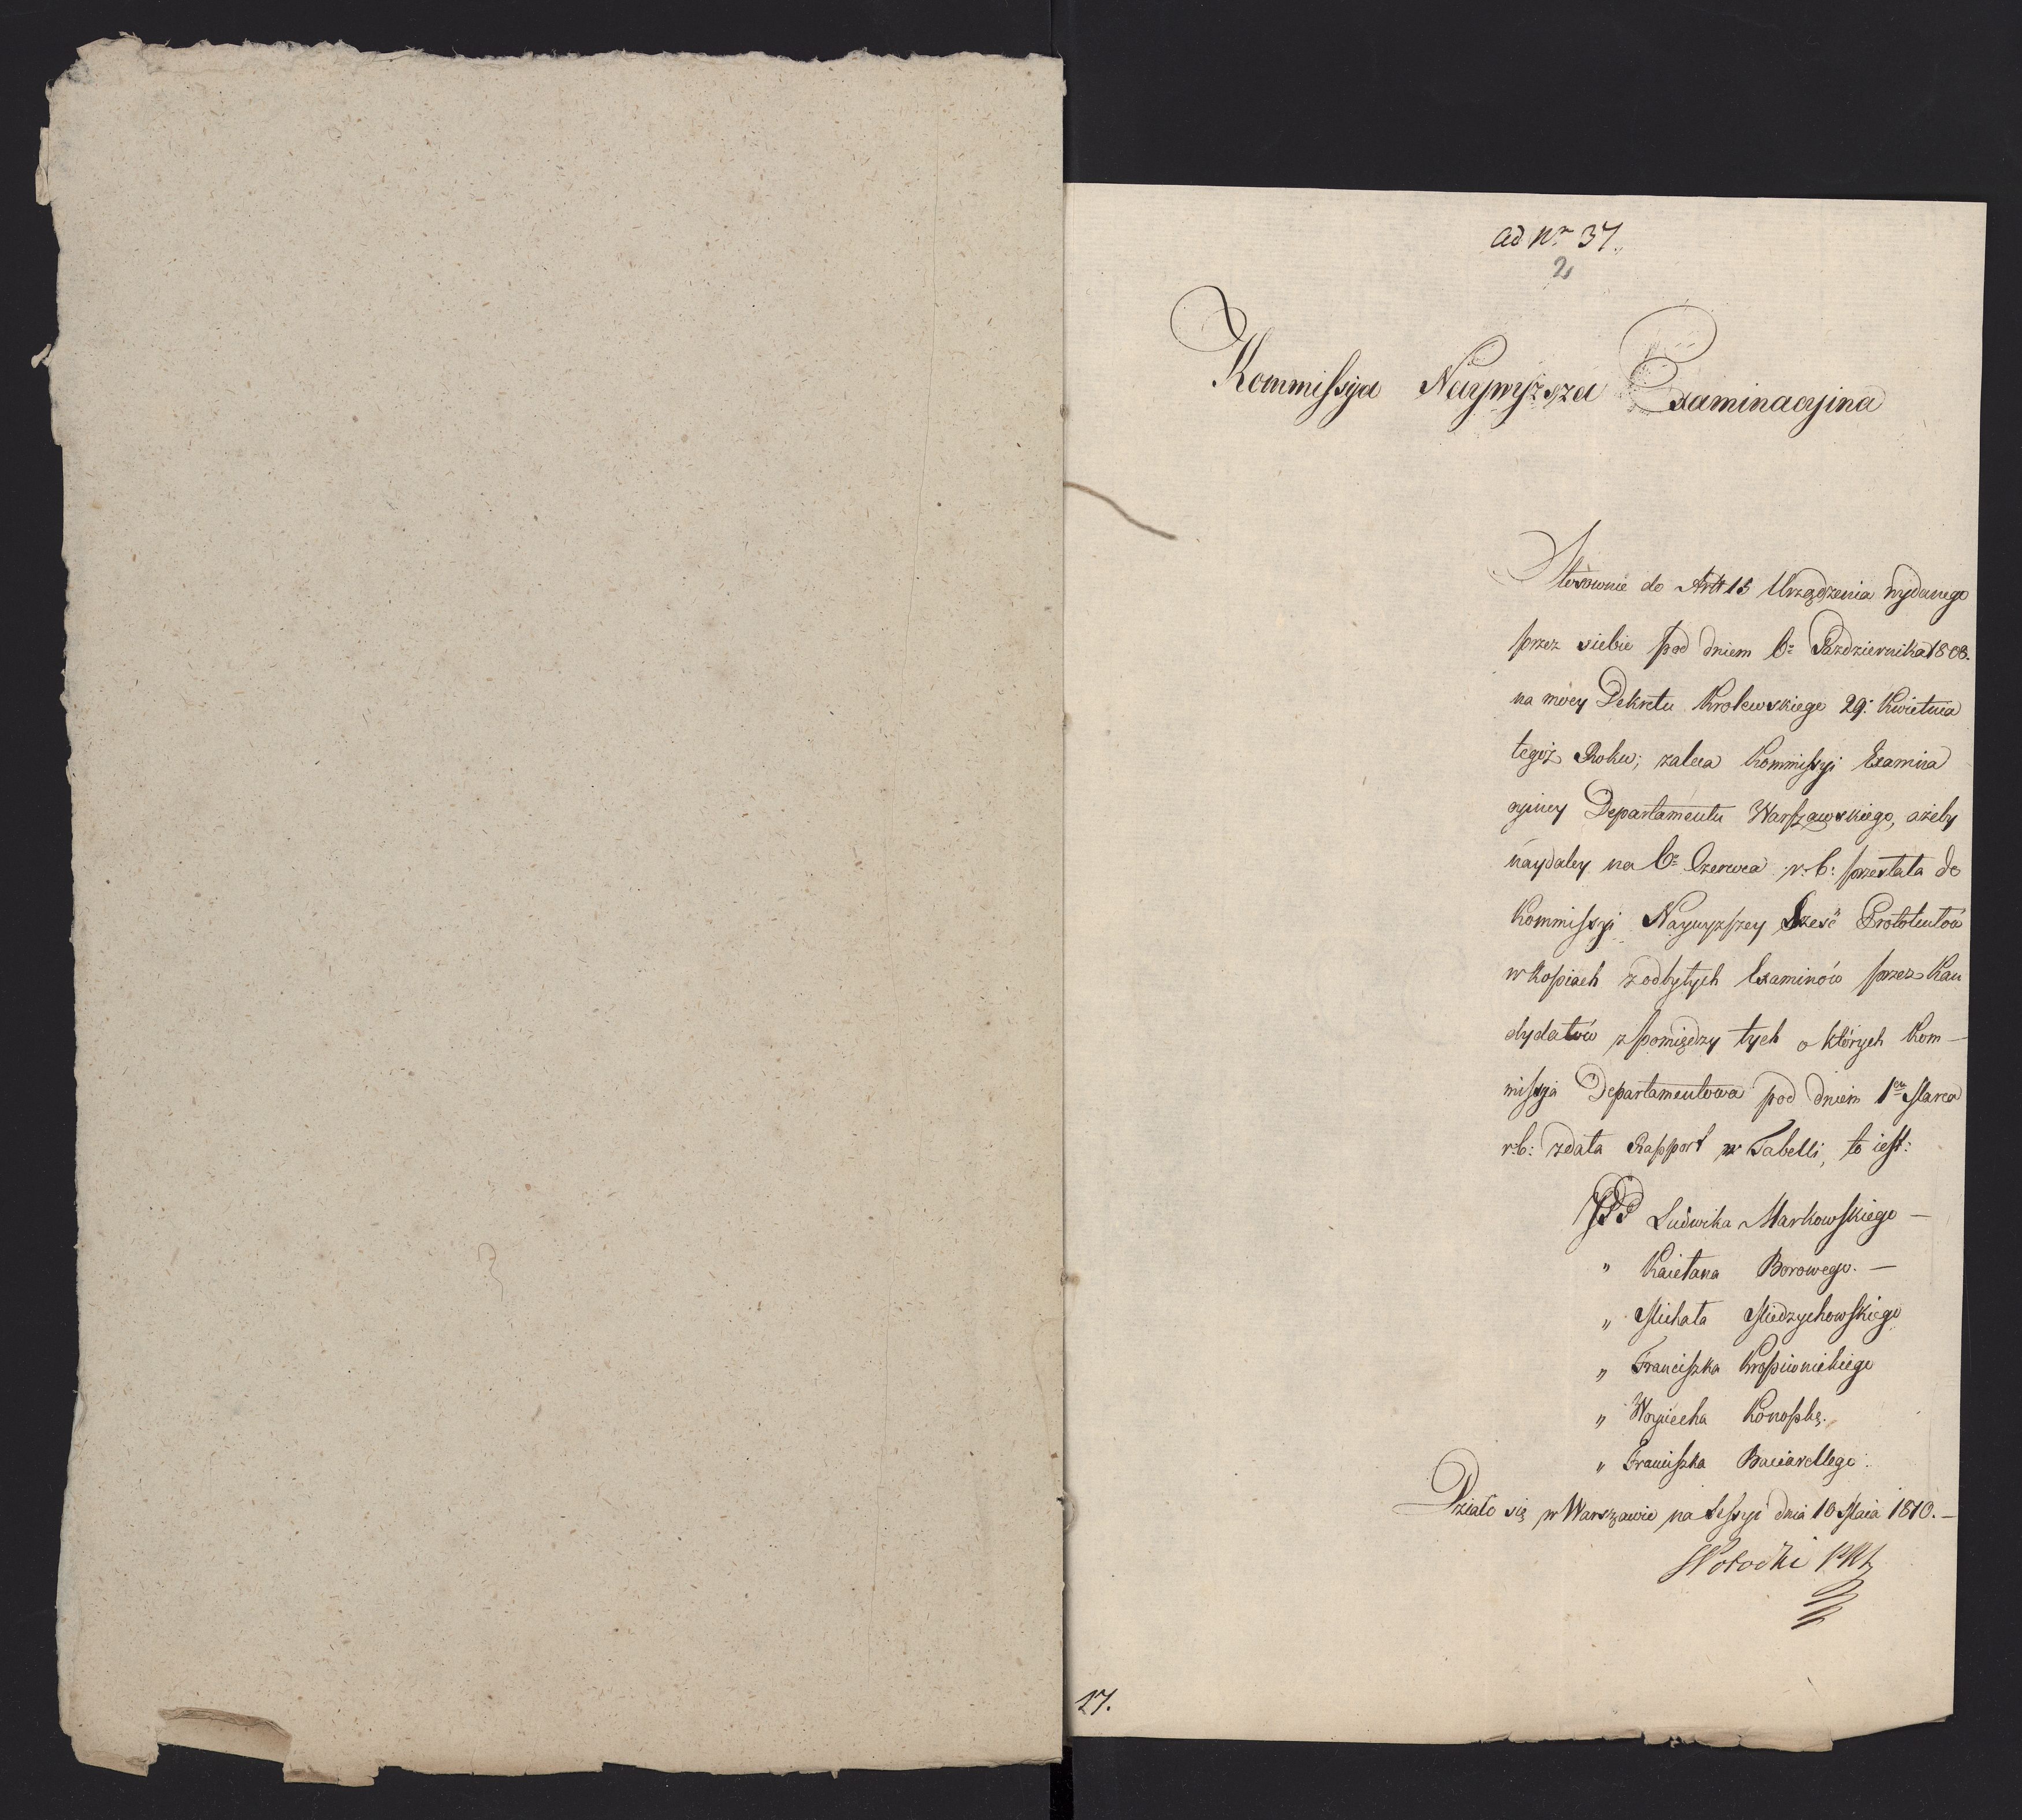 ad Nr 37.
2
Kommissyia Naywyższa Examinacyina
Stosownie do Artt 15 Urządzenia wydanego
przez siebie pod dniem 6: Pazdziernika 1808.
na mocy Dekretu Krolewskiego 29: Kwietnia
tegoż Roku; zaleca Kommissyi Examina
cyiney Departamentu Warszawskiego, ażeby
naydaley na 6: Czerwca r: b: przesłała do
Kommissyi Naywyzszey Sześć Prototułów
w Kopiach z odbytych Examinów przez Kan
dydatów z pomiędzy tych o których Kom-
missyia Departamentowa pod dniem 1go Marca
r: b: zdała Rapport w Tabelli, to iest:
JPP Ludwika Markowskiego —
" Kaietana Borowego. —
" Michała Miedzychowskiego
" Franciszka Kropiwnickiego
" Woyciecha Konopkę.
" Franciszka Bacciarellego.
Działo się w Warszawie na Sessyi dnia 10 Maia 1810. —
Potocki
17.